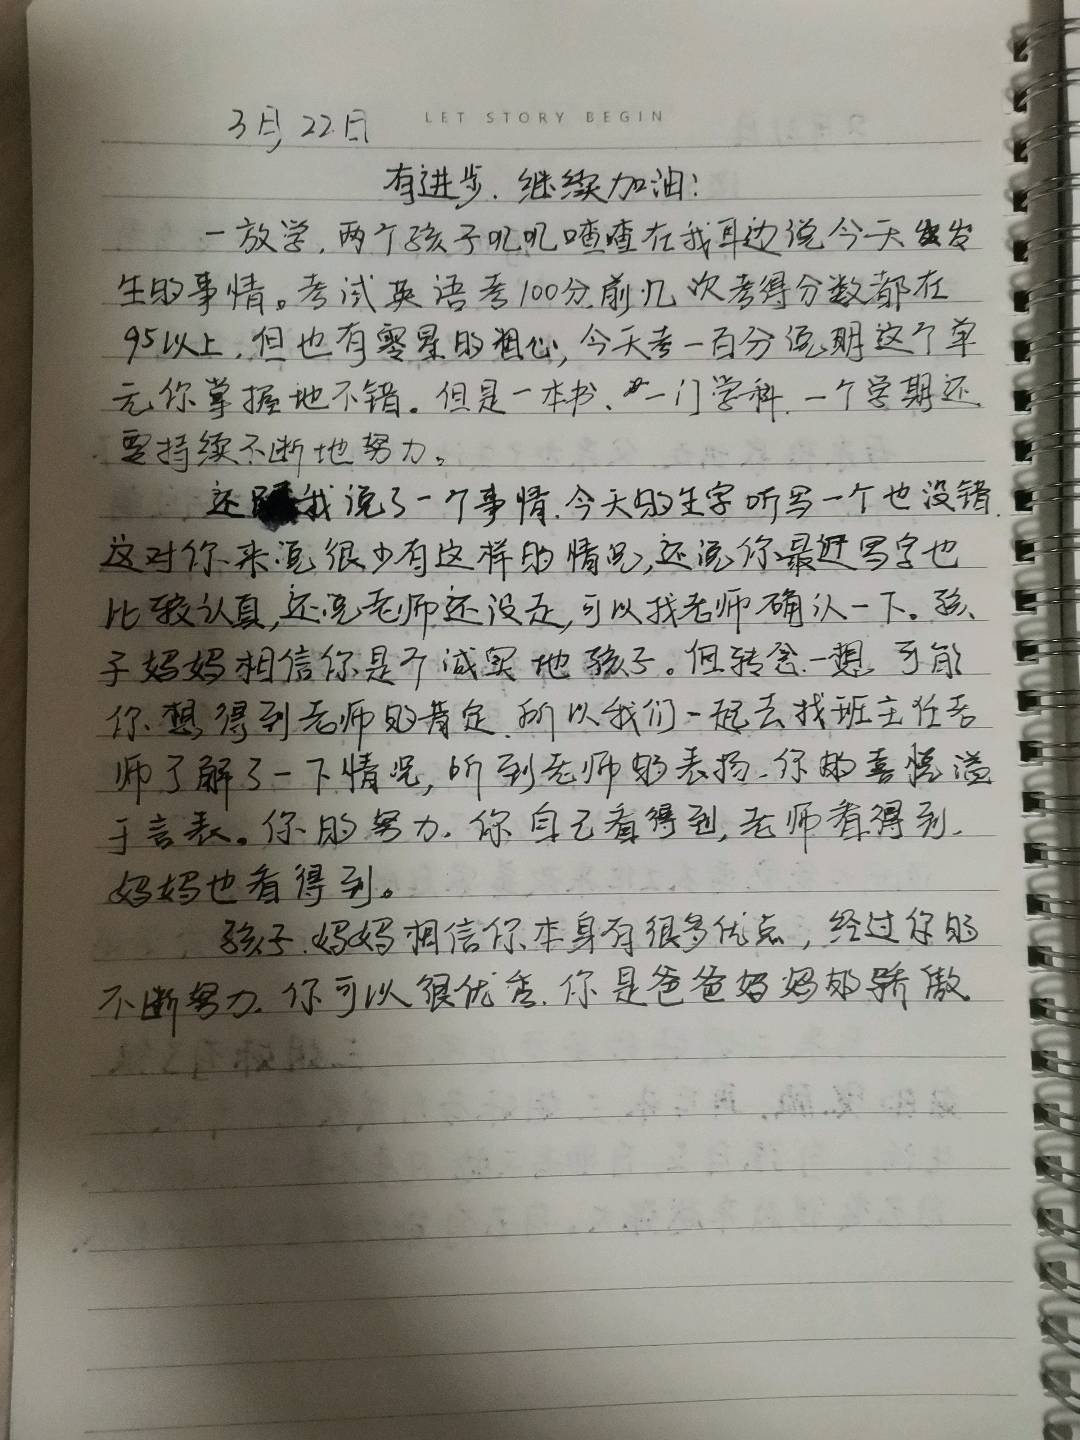 3月22日 LET STORY BEGIN
有进步、继续加油!
一放学,两个孩子叽叽喳喳在我耳边说今天发
生的事情。考试英语考100分,前几次考得分数都在
95以上,但也有零星的粗心,今天考一百分说明这个单
元你掌握地不错。但是一本书、一门学科、一个学期还
要持续不断地努力。
还跟我说了一个事情,今天的生字听写一个也没错,
这对你来说很少有这样的情况,还说你最近写字也
比较认真,还说老师还没走,可以找老师确认一下。孩
子妈妈相信你是个诚实地孩子。但转念一想,可能
你想得到老师的肯定,所以我们一起去找班主任老
师了解了一下情况,听到老师的表扬,你的喜悦溢
于言表。你的努力,你自己看得到,老师看得到,
妈妈也看得到。
孩子,妈妈相信你本身有很多优点,经过你的
不断努力,你可以很优秀,你是爸爸妈妈的骄傲